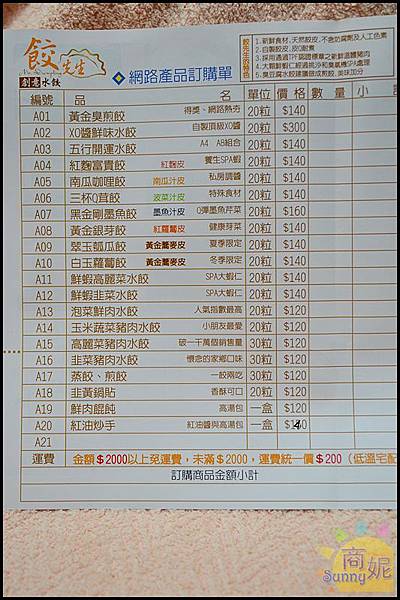 餃先生
創意水餃
網路產品訂購單
餃先生的特色
1.新鮮食材,天然餃皮,不含防腐劑及人工色素
2.自製餃皮,皮Q耐煮
3.採用通過TF認證標章之新鮮溫體豬肉
4.大顆鮮蝦仁經過挑沙和臭氧機SPA處理
5.臭豆腐水餃建議做成煎餃,美味加分
編號 品 名 單位 價格 數量 小
A01 黃金臭煎餃 得獎、網路熱夯 20粒 $140
A02 XO醬鮮味水餃 自製頂級XO醬 20粒 $300
A03 五行開運水餃 A4 AB組合 20粒 $140
A04 紅麴富貴餃 紅麴皮 養生SPA蝦 20粒 $140
A05 南瓜咖哩餃 南瓜汁皮 私房調醬 20粒 $140
A06 三杯Q茸餃 菠菜汁皮 特殊食材 20粒 $140
A07 黑金剛墨魚餃 墨魚汁皮 Q彈墨魚芹菜 20粒 $160
A08 黃金銀芽餃 紅蘿蔔皮 健康芽菜 20粒 $140
A09 翠玉瓠瓜餃 黃金蕎麥皮 夏季限定 20粒 $140
A10 白玉蘿蔔餃 黃金蕎麥皮 冬季限定 20粒 $140
A11 鮮蝦高麗菜水餃 SPA大蝦仁 20粒 $140
A12 鮮蝦韭菜水餃 SPA大蝦仁 20粒 $140
A13 泡菜鮮肉水餃 人氣指數最高 20粒 $120
A14 玉米蔬菜豬肉水餃 小朋友最愛 20粒 $120
A15 高麗菜豬肉水餃 破一千萬個銷售量 30粒 $120
A16 韭菜豬肉水餃 懷念的家鄉口味 30粒 $120
A17 蒸餃、煎餃 一餃兩吃 30粒 $120
A18 韭黃鍋貼 香酥可口 20粒 $120
A19 鮮肉餛飩 高湯包 一盒 $120
A20 紅油炒手 紅油醬與高湯包 一盒 $140
A21
運費 金額$2000以上免運費,未滿$2000,運費統一價$200(低溫宅配
訂購商品金額小計
商妮
Sunny